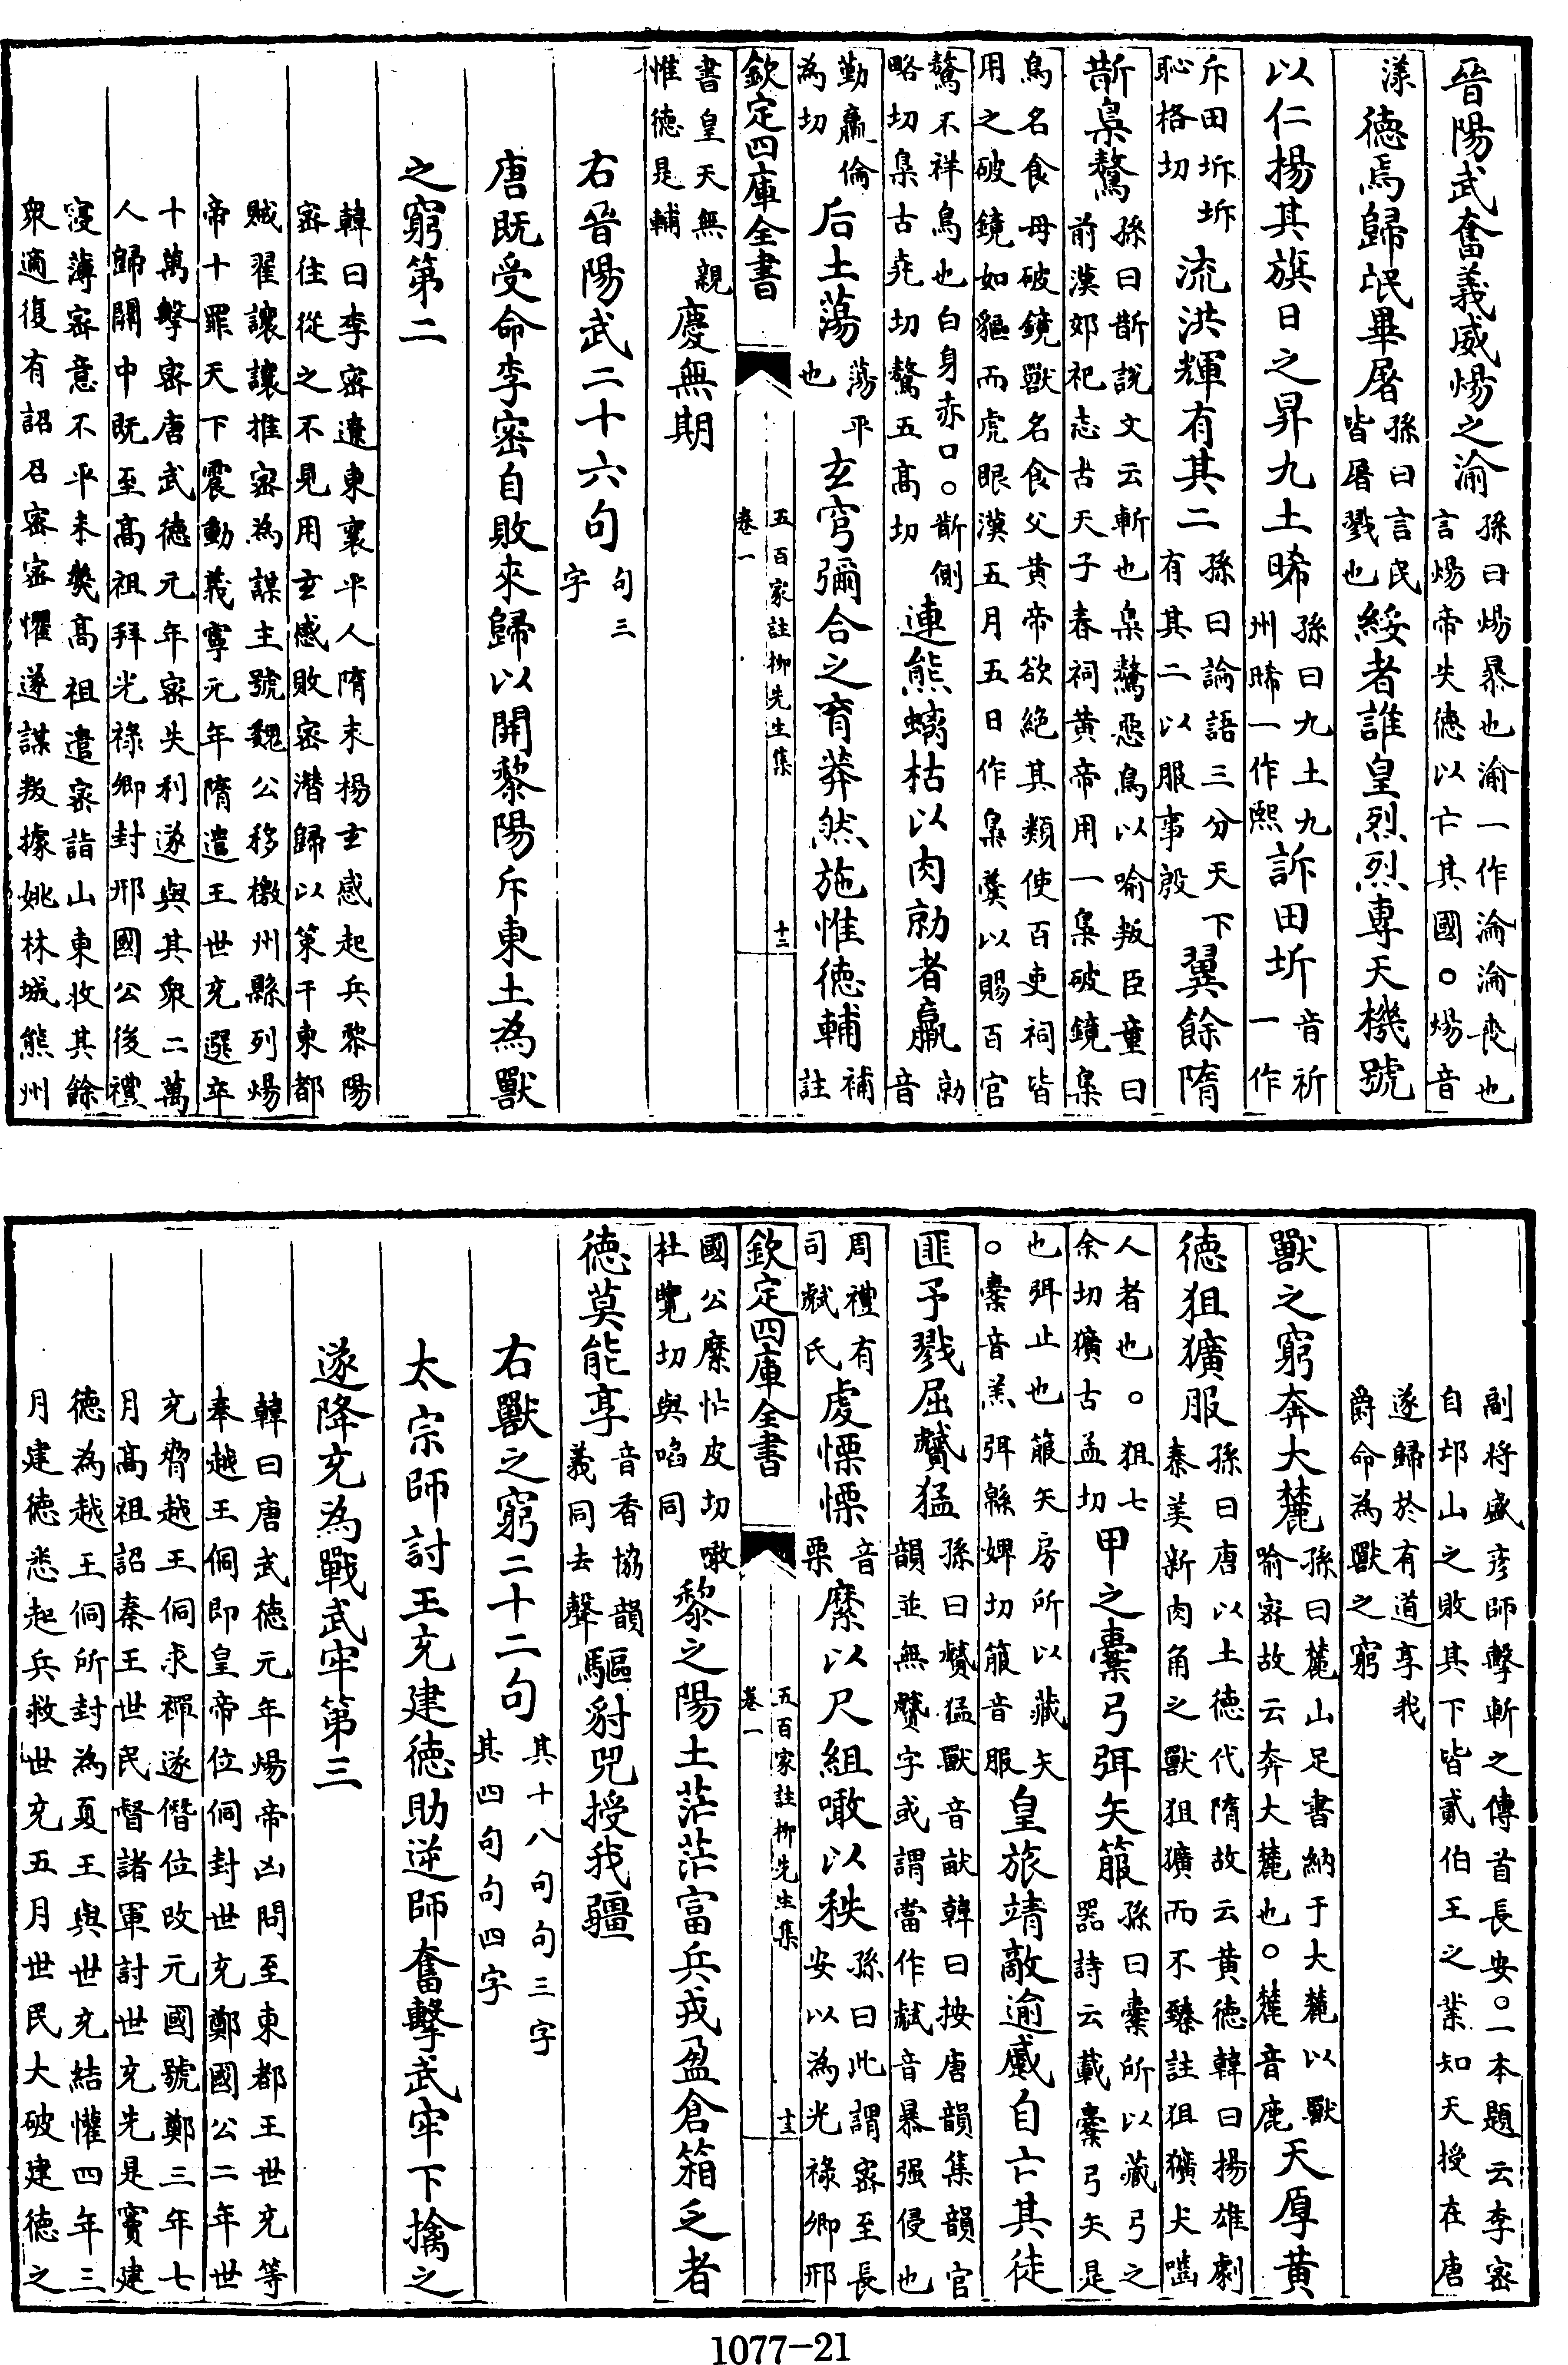 晉陽武奮義威煬之渝孫曰煬暴也渝一作淪淪喪也言煬帝失德以亡其國○煬音
漾德焉歸氓畢屠孫曰言民皆屠戮也綏者誰皇烈烈專天機號
以仁揚其旗日之昇九土晞孫曰九土九州晞一作熙訴田圻音祈一作
斥田坼坼恥格切流洪輝有其二孫曰論語三分天下有其二以服事殷翼餘隋
斮梟鷔孫曰斮說文云斬也梟鷔惡鳥以喻叛臣童曰前漢郊祀志古天子春祠黃帝用一梟破鏡梟
鳥名食母破鏡獸名食父黃帝欲絕其類使百吏祠皆用之破鏡如貙而虎眼漢五月五日作梟羹以賜百官
鷔不祥鳥也白身赤口○斮側略切梟古堯切鷔五高切連熊螭枯以肉勍者羸勍音
勤羸倫為切后土蕩蕩平也玄穹彌合之育莽然施惟德輔補註
欽定四庫全書 五百家註柳先生集 卷一 十二
書皇天無親惟德是輔慶無期
右晉陽武二十六句句三字
唐既受命李密自敗來歸以開黎陽斥東土為獸
之窮第二
韓曰李密遼東襄平人隋末楊玄感起兵黎陽密往從之不見用玄感敗密潛歸以策干東都
賊翟讓讓推密為謀主號魏公移檄州縣列煬帝十罪天下震動義寧元年隋遣王世充選卒
十萬擊密唐武德元年密失利遂與其衆二萬人歸關中既至高祖拜光祿卿封邢國公後禮
寖薄密意不平未幾高祖遣密詣山東收其餘衆適復有詔召密密懼遂謀叛據姚林城熊州
副将盛彥師擊斬之傳首長安○一本題云李密自邙山之敗其下皆貳伯王之業知天授在唐
遂歸於有道享我爵命為獸之窮
獸之窮奔大麓孫曰麓山足書納于大麓以獸喻密故云奔大麓也○麓音鹿天厚黃
德狙獷服孫曰唐以土德代隋故云黃德韓曰揚雄劇秦美新肉角之獸狙獷而不臻註狙獷犬噛
人者也○狙七余切獷古孟切甲之櫜弓弭矢箙孫曰櫜所以藏弓之器詩云載櫜弓矢是
也弭止也箙矢房所以藏矢○櫜音羔弭緜婢切箙音服皇旅靖敵逾蹙自亡其徒
匪予戮屈贙猛孫曰贙猛獸音畎韓曰按唐韻集韻官韻並無贙字或謂當作虣音暴强侵也
周禮有司虣氏虔慄慄音栗縻以尺組噉以秩孫曰此謂密至長安以為光祿卿邢
欽定四庫全書 五百家註柳先生集 卷一 十三
國公縻忙皮切噉杜覽切與啗同黎之陽土茫茫富兵戎盈倉箱乏者
德莫能享音香協韻義同去聲驅豺兕授我疆
右獸之窮二十二句其十八句句三字其四句句四字
太宗師討王充建德助逆師奮擊武牢下擒之
遂降充為戰武牢第三
韓曰唐武德元年煬帝凶問至東都王世充等奉越王侗即皇帝位侗封世充鄭國公二年世
充脅越王侗求禪遂僭位改元國號鄭三年七月高祖詔秦王世民督諸軍討世充先是竇建
德為越王侗所封為夏王與世充結懽四年三月建德悉起兵救世充五月世民大破建德之
1077-21